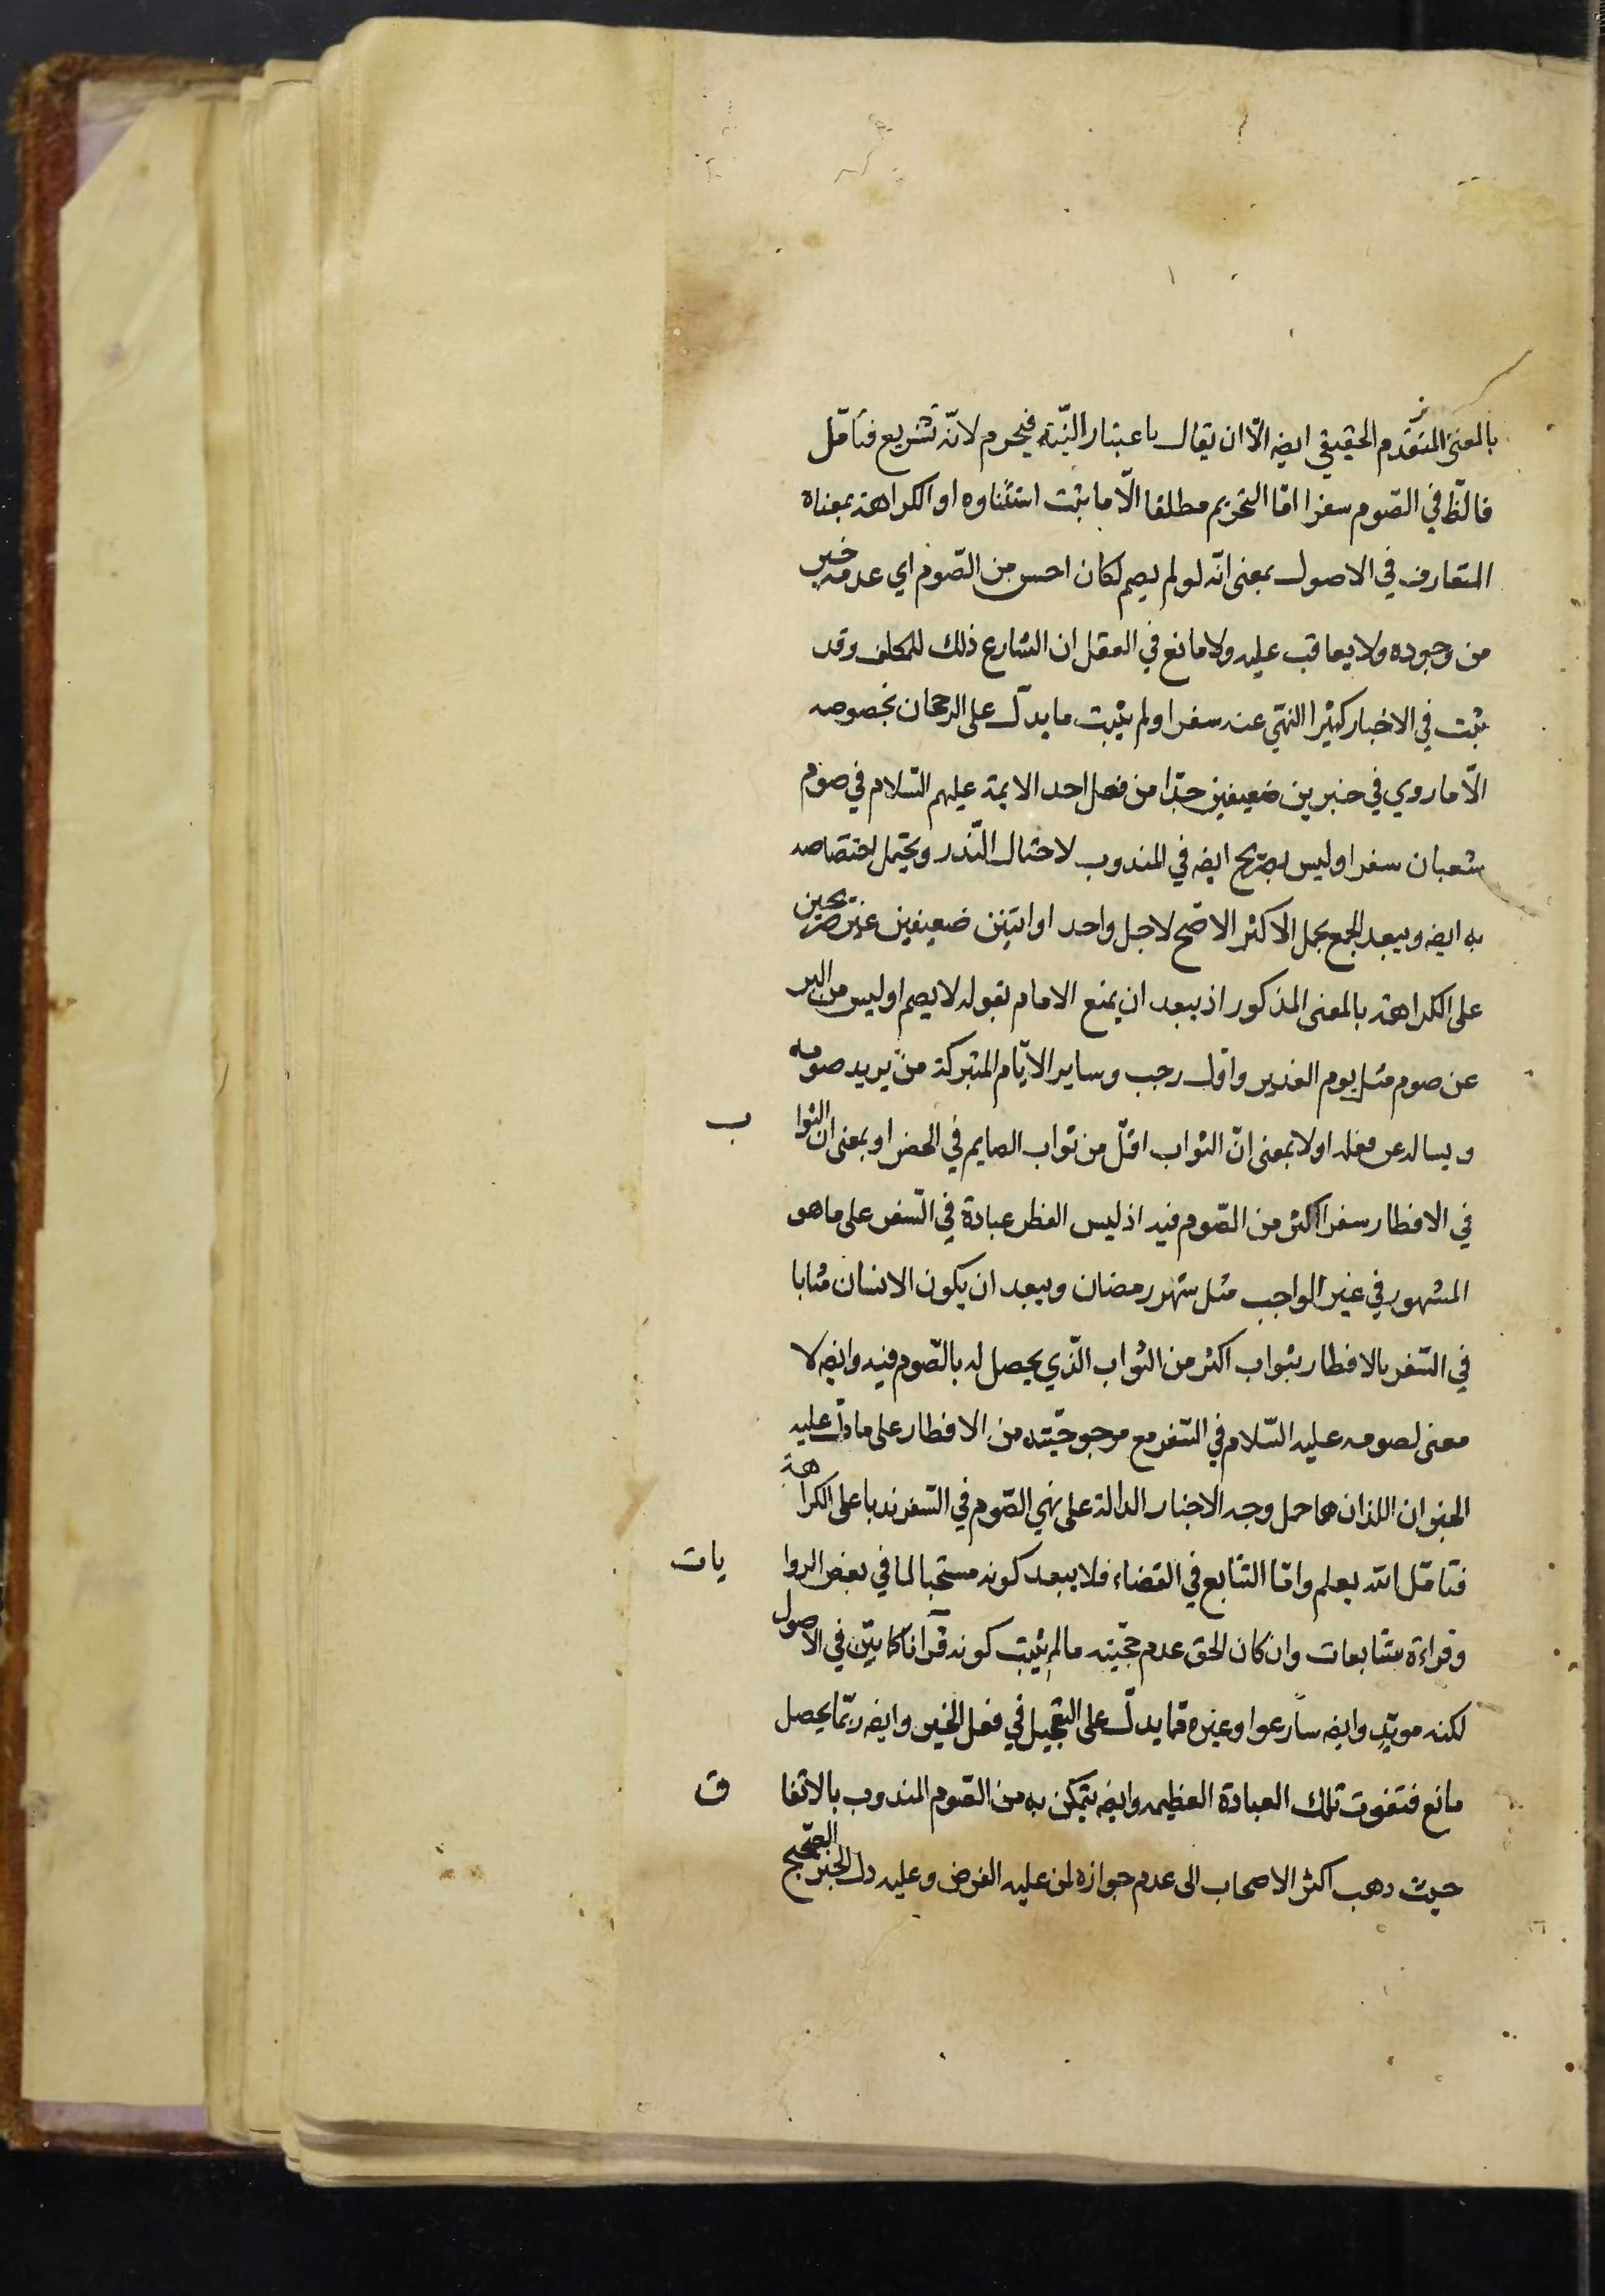 بالمعنى المتقدم الحقيقي ايضه الّا ان يقال باعتبار النيّة فيحرم لانّه تشريع فتأمّل
فالظّ في الصّوم سفرا امّا التحريم مطلقا الّا ما ثبت استثناوه او الكراهة بمعناه
المتعارف في الاصول بمعنى انّه لو لم يصم لكان احسن من الصّوم اي عدمه خير
من وجوده ولا يعاقب عليه ولا مانع في العقل ان الشارع ذلك للمكلف وقد
ثبت في الاخبار كثيرا النهي عنه سفرا ولم يثبت ما يدلّ على الرجحان بخصوصه
الّا ما روي في خبرين ضعيفين جدّا من فعل احد الايمة عليهم السّلام في صوم
شعبان سفرا وليس بصريح ايضه في المندوب لاحتمال النّذر ويحتمل اختصاصه
به ايضه ويبعد الجمع بحمل الاكثر الاصّح لاجل واحد او اثنين ضعيفين غير صريحين
على الكراهة بالمعنى المذكور اذ يبعد ان يمنع الامام بقوله لا يصم او ليس من البر
عن صوم مثل يوم الغدير واوّل رجب وساير الايّام المتبركة من يريد صومه
ويساله عن فعله اولا بمعنى انّ الثواب اقلّ من ثواب الصايم في الحضر او بمعنى ان الثوا ب
في الافطار سفرا اكثر من الصّوم فيه اذ ليس الفطر عبادة في السّفر على ما هو
المشهور في غير الواجب مثل شهر رمضان ويبعد ان يكون الانسان مثابا
في السّفر بالافطار بثواب اكثر من الثواب الّذي يحصل له بالصّوم فيه وايضه لا
معنى لصومه عليه السّلام في السّفر مع مرجوحيّته من الافطار على ما دلّ عليه
الخبران اللذان هما حمل وجه الاخبار الدالة على نهي الصّوم في السّفر ندبا على الكراهة
فتامّل الله يعلم وامّا التتابع في القضاء فلا يبعد كونه مستحبا لما في بعض الروا يات
وقراءة متتابعات وان كان الحق عدم حجّيته ما لم يثبت كونه قرآنا كما بيّن في الاصول
لكنه مويّد وايضه سارعوا وغيره ممّا يدلّ على التعجيل في فعل الخير وايضه ربّما يحصل
مانع فتفوت تلك العبادة العظيمه وايضه يتمكن به من الصّوم المندوب بالاتفا ق
حيث ذهب اكثر الاصحاب الى عدم جوازه لمن عليه الفرض وعليه دل الخبر الصّحيح